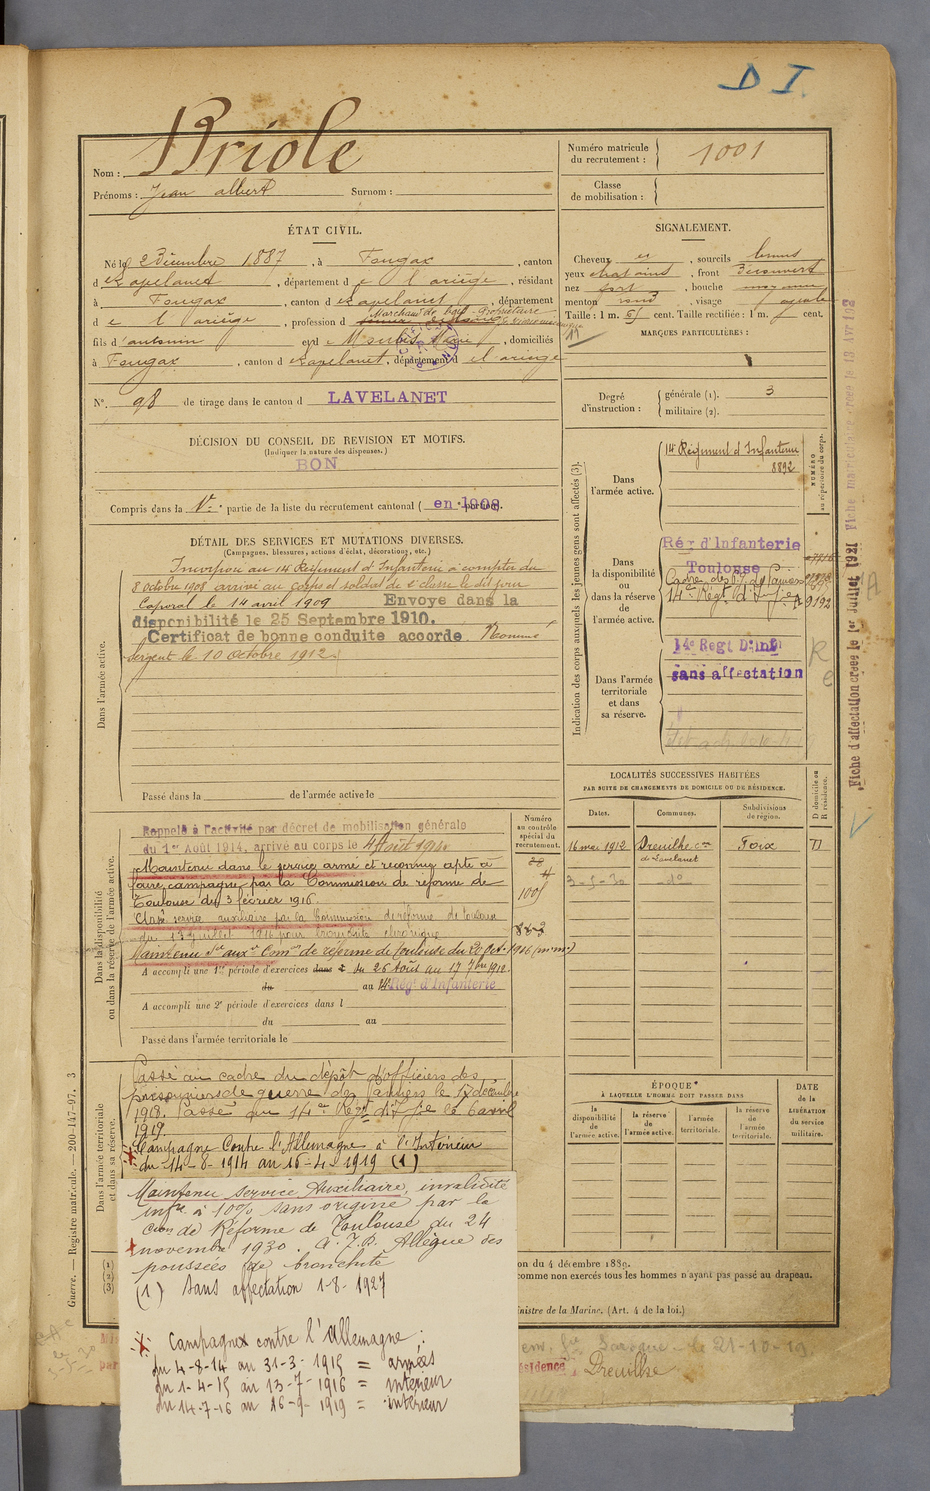 D I.
Nom : Briole
Prénoms : Jean albert Surnom :
Numéro matricule du recrutement : 1001
Classe de mobilisation :
ÉTAT CIVIL.
Né le 2 Décembre 1887, à Fougax, canton
d Lavelanet, département d e l'ariège, résidant
à Fougax, canton d Lavelanet, département
d e l ariège, profession d Marchand de bois - propriétaire
fils d'antonin et d e Marie, domiciliés
à Fougax, canton d Lavelanet, département d el ariege
N° 98 de tirage dans le canton d LAVELANET
DÉCISION DU CONSEIL DE REVISION ET MOTIFS.
(Indiquer la nature des dispenses.)
BON
Compris dans la 1re partie de la liste du recrutement cantonal ( en 1908.
SIGNALEMENT.
Cheveux, sourcils bruns
yeux chatains, front Découvert
nez fort, bouche moyenne
menton rond, visage ovale
Taille : 1 m. 65 cent. Taille rectifiée : 1 m. cent.
MARQUES PARTICULIÈRES :
Degré d'instruction : générale (1). 3
militaire (2).
DÉTAIL DES SERVICES ET MUTATIONS DIVERSES.
(Campagnes, blessures, actions d'éclat, décorations, etc.)
Dans l'armée active.
Incorporé au 14 Régiment d'Infanterie à compter du
8 octobre 1908 arrivé au Corps et soldat de 2e classe le dit jour
Caporal le 14 avril 1909 Envoyé dans la
disponibilité le 25 Septembre 1910.
Certificat de bonne conduite accordé. Nommé
Sergent le 10 Octobre 1912
Passé dans la de l'armée active le
Indication des corps auxquels les jeunes gens sont affectés (3).
NUMÉRO au répertoire du corps.
Dans l'armée active.
14 Régiment d'Infanterie
8892
Dans la disponibilité ou dans la réserve de l'armée active.
Rég d'Infanterie
Toulouse
14e Régt d'Infie
A 9192
Dans l'armée territoriale et dans sa réserve.
14e Regt D'inf
sans affectation
Fiche d'affectation créée le 1er Juillet 1921
Fiche matriculaire créée le 13 Avr
LOCALITÉS SUCCESSIVES HABITÉES
PAR SUITE DE CHANGEMENTS DE DOMICILE OU DE RÉSIDENCE.
Dates. Communes. Subdivisions de région. D domicile ou R résidence.
16 mai 1912 Dreuilhe con de Lavelanet Foix D
3-5-30 do
Dans la disponibilité ou dans la réserve de l'armée active.
Numéro au contrôle spécial du recrutement.
Rappelé à l'activité par décret de mobilisation générale
du 1er Août 1914, arrivé au corps le 4 Août 1914
Maintenu dans le service armé et reconnu apte à
faire campagne par la Commission de réforme de
Toulouse du 3 février 1916.
Classé service auxiliaire par la Commission de réforme de Toulouse
du 13 juillet 1916 pour bronchite chronique
Maintenu sce auxre Comon de réforme de Toulouse du 20 Oct. 1916 (m.m.)
A accompli une 1re période d'exercices dans l du 26 Août au 17 7bre 1912.
du au 14 Régt d'Infanterie
A accompli une 2e période d'exercices dans l
du au
Passé dans l'armée territoriale le
Dans l'armée territoriale et dans sa réserve.
Passé au cadre du dépôt d'officiers des
prisonniers de guerre de Pamiers le 17 décembre
1918. Passé au 14e Régt d'Infie le 6 avril
1919.
Campagne Contre l'Allemagne à l'Intérieur
du 14-8-1914 au 16-4-1919 (1)
ÉPOQUE
À LAQUELLE L'HOMME DOIT PASSER DANS
la disponibilité de l'armée active. la réserve de l'armée active. l'armée territoriale. la réserve de l'armée territoriale.
DATE de la LIBÉRATION DU SERVICE militaire.
Guerre. — Registre matricule. — 200-147-97. 3
Maintenu service Auxiliaire, invalidité
infre à 10% sans origine par la
Cion de Réforme de Toulouse du 24
novembre 1930. Allègue des
poussées de bronchite
(1) Sans affectation 1-8-1927
Campagnes contre l'allemagne :
du 4-8-14 au 31-3-1915 = armées
du 1-4-15 au 13-7-1916 = intérieur
du 14-7-16 au 16-9-1919 = intérieur
(1)
(2)
(3)
on du 4 décembre 1889.
comme non exercés tous les hommes n'ayant pas passé au drapeau.
inistre de la Marine. (Art. 4 de la loi.)
le 21-10-19
résidence, Dreuilhe